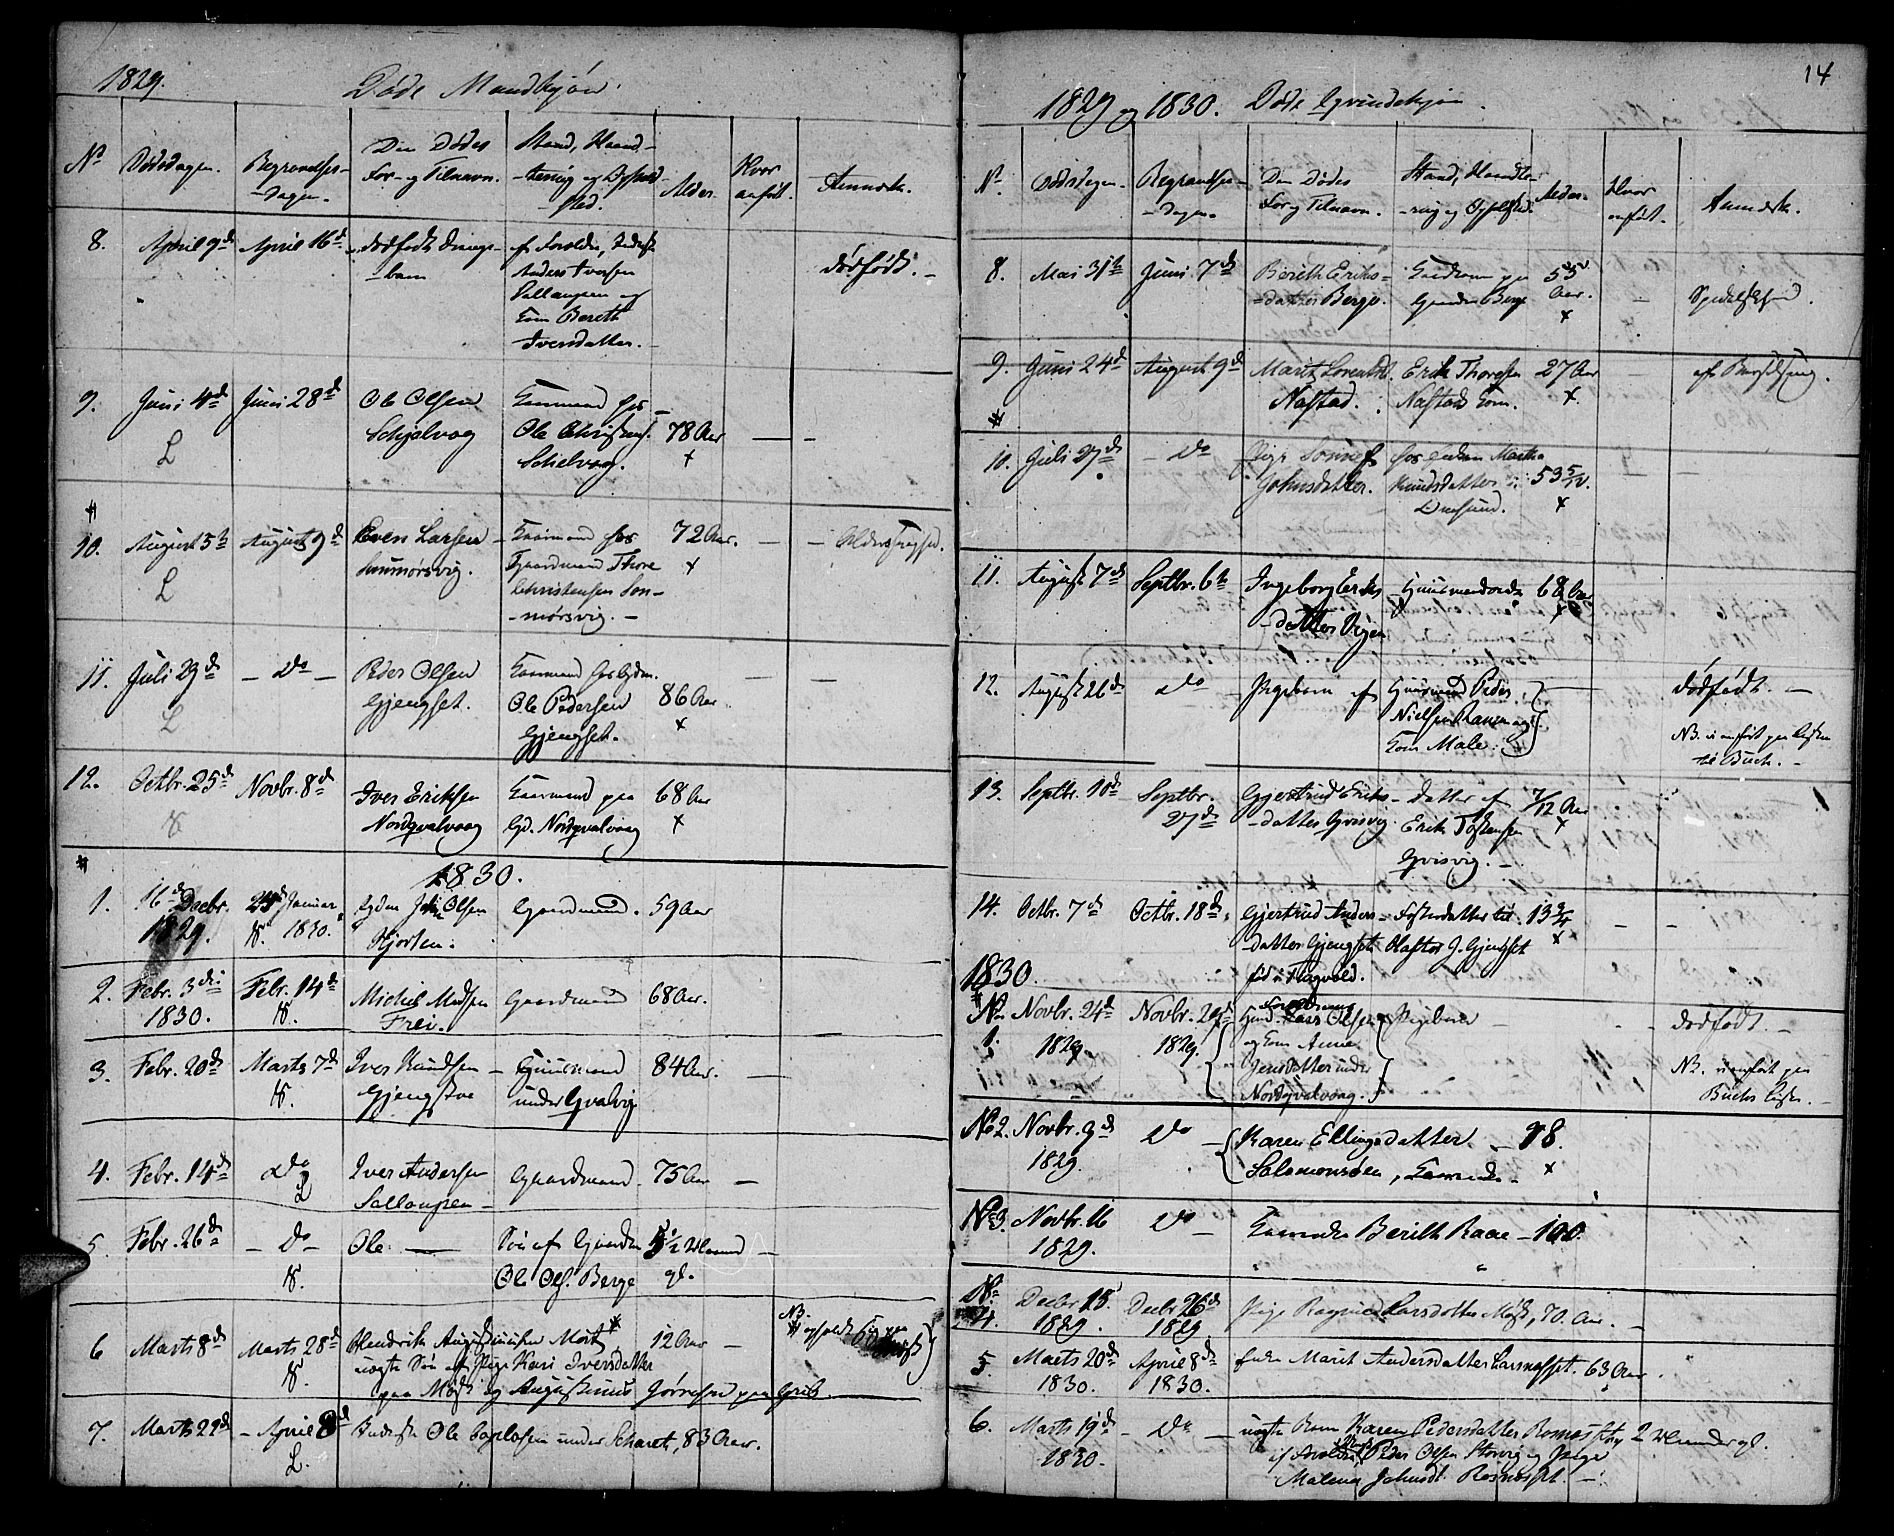 1829.
Døde Mandkjøn.
No
Dødsdagen.
Begravelses-
-Dagen.
Den Dødes
For- og Tilnavn.
Stand, Haand-
-tering og Opholds-
-sted.
Alder.
Hvor
anført.
Anmærk.
8. April 9de April 16de dødfødt Drenge-
-barn
af Forældre, Inderst
Anders Iversen
Sallaupen og
Kone Bereth
Iversdatter.
dødfødt. -
9. Juni 4de Juni 28de Ole Olsen
Schjelvog
L
Kaarmand hos
Ole Christens.
Schelvog.
78 Aar
+
10. August 5te August 9de Even Larsen
Sunmørsvig.
L
Kaarmand hos
Gaardmand Thore
Christensen Son-
-mørsvig. -
72 Aar.
+
11. Juli 29de - Do - Peder Olsen
Gjengset.
L
Kaarmand hos
Ole Pedersen
Gjengset.
86 Aar
+
12. Octbr. 25de Novbr. 8de Iver Eriksen
Nordqvalvaag
Kaarmand paa
Gd. Nordqvalvaag
68 Aar
+
1830.
1. 16de Decbr.
1829.
Januar
1830.
Olsen
Hjorten.
Gaardmand. 59 Aar
2. Febr. 3die
1830.
Febr. 14de
Michel Madsen
Frei.
Gaardmand 68 Aar.
3. Febr. 20de Marts 7de Iver Knudsen
Gjengstøe
Huusmand
under Qvalvig
84 Aar.
4. Febr. 14de do
L
Iver Andersen
Sallaupen
Gaardmand 75 Aar
5. Febr. 26de - do - Ole.
Søn af Gaardm.
Ole Ols. Berge
Maaned
gl.
6 Marts 8de Marts 28de Hendrik Augustinusen Møst
12 Aar
uægte Søn af Pige Kari Iversdatter
paa Møst og Augustinus paa Grib.
NB.
7. Marts 29de - April 8de Inderst Ole under Scharet, 83 Aar.
L.
14
1829 og 1830. Døde Qvindekjøn.
No.
Dødsdagen.
Begravelses-
-Dagen.
Den Dødes
For og Tilnavn.
Stand, Haandte-
-ring og Opholdsted.
Alder.
Hvor
anført.
Anmærk.
8. Mai 31te Juni 7de Bereth Eriks-
-datter Berge.
Gaardkone paa
Gaarden Berge
55
Aar.
+
Spedalskhed.
9. Juni 24de August 9de Marit Lorentsd.
Nastad.
Erik Thoresen
Nastads Kone.
27 Aar
+
af Barselseng.
10. Juli 27de - Do Pige
Johnsdatter.
hos Martha
Knudsdatter i
Omsund.
53 5/12.
+
11. August 7de Septbr. 6te Ingeborg Eriks
-datter Vigen
Huusmandsenke 68 Aar
+
12. August 26de do Pigebarn af Huusmand Peder
Nielsen Ranem og
Kone Male.
dødfødt. -
NB. ei anført paa Listen
til Buch. -
13. Septbr. 10de Septbr.
27de
Gjertrud Eriks-
-datter Qvisvig.
Datter af
Erik Tostensen
Qvisvig. -
7/12 Aar
+
14. Octbr. 7de Octbr. 18de Gjertrud Anders-
-datter Gjengset
fød i Tingvold.
Fosterdatter til
Olaftor J. Gjengset
13 3/4
+
1830.
No
1.
Novbr. 24de
1829.
Novbr. 29de
1829.
Forældrene
Huusm. Lars Olsen
og Kone Anne
Jensdatter under
Nordqvalvaag.
Pigebarn
dødfødt. -
NB. ei anført paa
Buchs Liste. -
No 2. Novbr. 9de
1829.
Do
Karen Ellingsdatter
Salamonsøen,
98.
+
No 3. Novbr. 16
1829.
Do
Berith Raae - 100.
No
4.
Decbr 15
1829.
Decbr 26de
1829
Pige Ragnild Larsdatter Møst, 70 Aar.
5. Marts 20de
1830.
April 8de
1830.
Enke Marit Andersdatter 63 Aar.
6. Marts 19de
1830.
- Do - uægte Barn Karen Pedersdatter 2 Maaneder gl.
af Forældre Peder Olsen Storvig og Pige
Malena